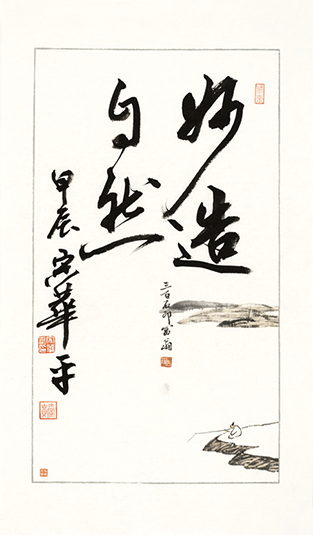 妙造
自然
甲辰
华平
三百石印富翁